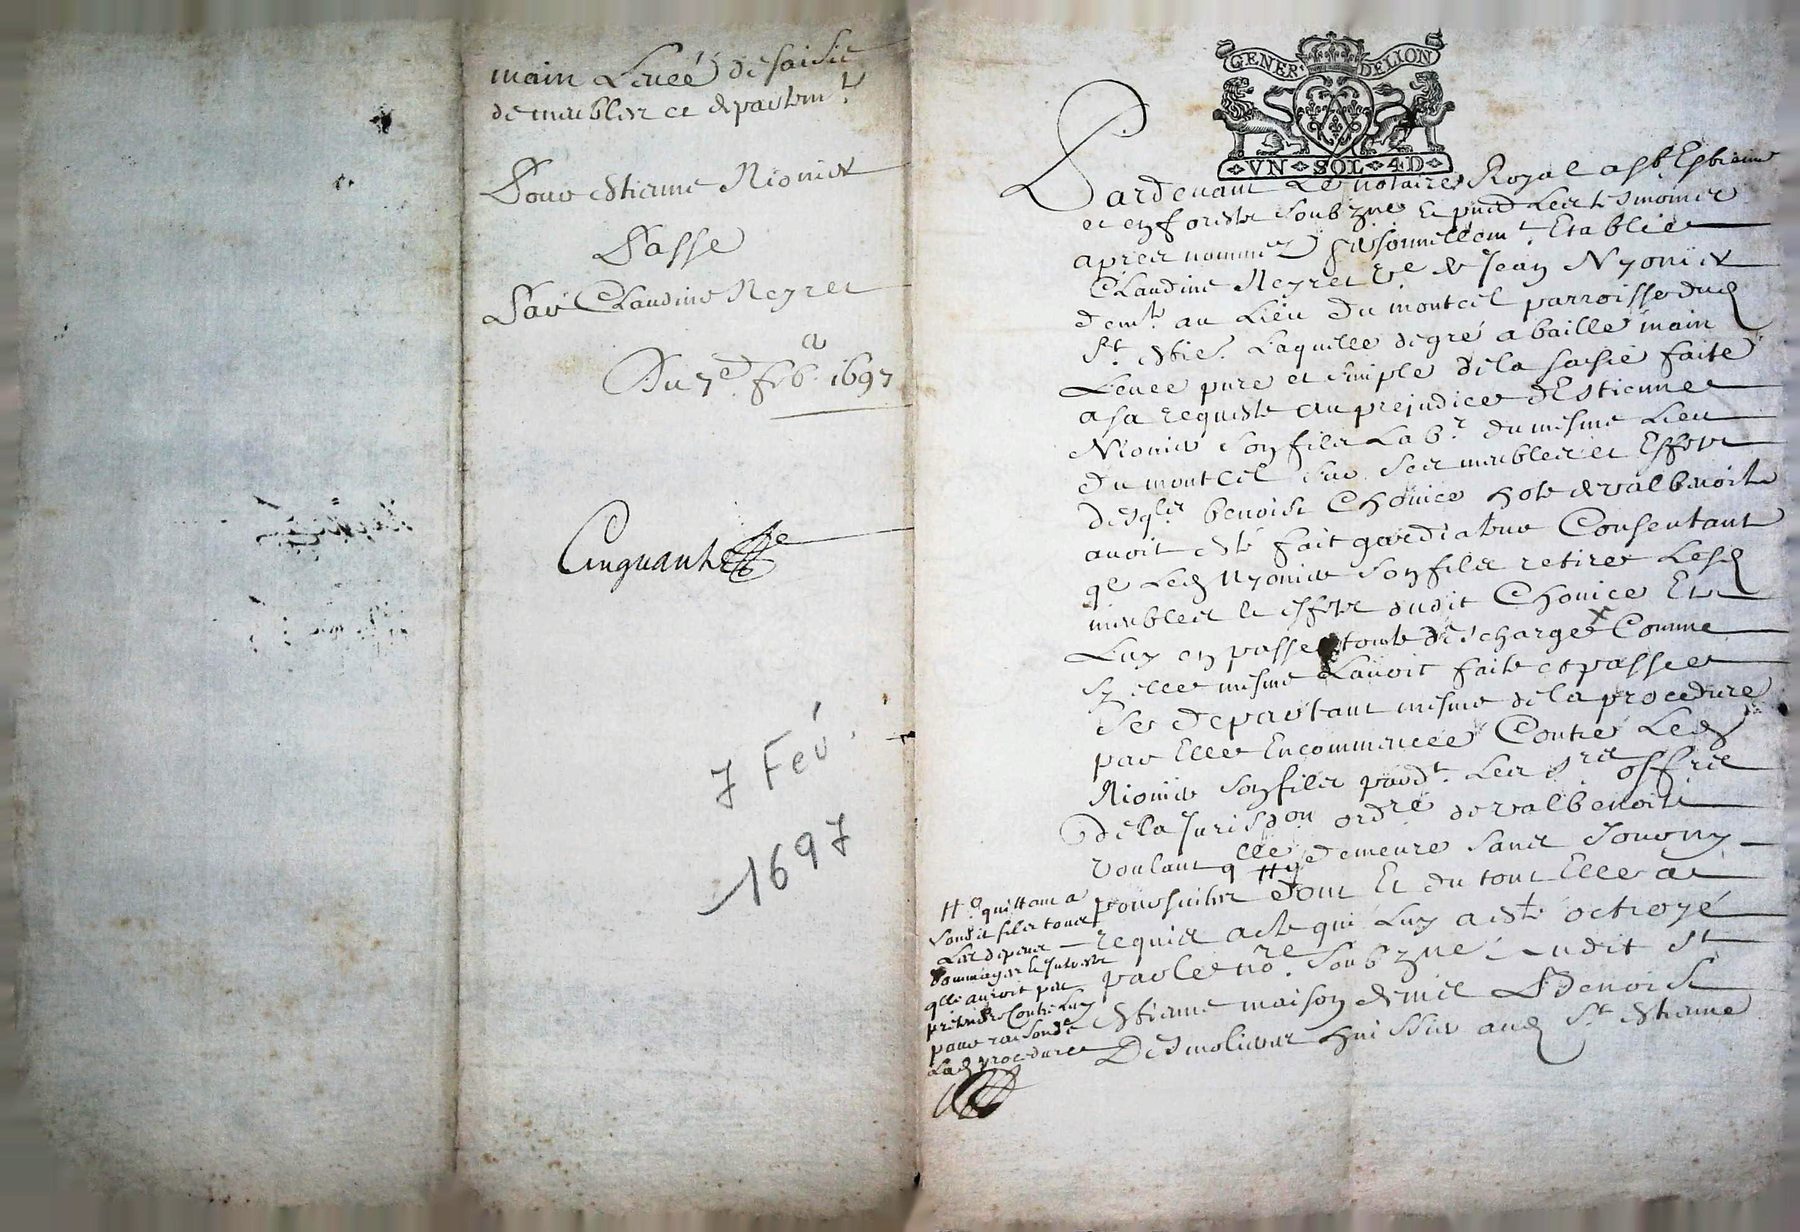 main Leueé de saisie
de meubles et departemt
Pour estienne Nionier
Passé
Par Claudine Neyret
Du 7e feb. 1697
Cinquante
7 Fév.
1697
GENER. DE LION
VN SOL 4D
Pardeuant Le notaire Royal a St Estienne
et en forests soubzne et pnts Les tesmoins
apres nommes personnellemt Establie
Claudine Neyret ve de Jean Nyonier
demt au Lieu du monteil parroisse dud
St estie. Laquelle de gré a baillé main
Leuee pure et simple de la saisie faite
a sa requeste au prejudice d'Estienne
Nionier son fils Labr. du mesme Lieu
du monteil sur ses meubles et Effets
desqls benoist Chouice hoste de valbenoite
auoit esté fait gardiateur Consentant
qe Led Nyonier son fils retire Lesd
meubles et effets dudit Chouice Et
Luy en passe toute descharge Comme
sy elle mesme Lauoit faite et passee
se departant mesme de la procedure
par Elle Encommencee Contre Led
Nionier son fils pardt. Les srs offres
de la Jurisdon ordre de valbenoite
voulant qlle demeure sans
poursuite dont Et du tout Elle a
requis acte qui Luy a esté octroyé
par le nore. soubzne audit St
estienne maison de me Benoist
Desmolieur huissier aud St estienne
# quittant a
sondit fils tous
Les depens
dommages et Interests
qlle auroit peu
pretendre Contre Luy
pour raison de
Lad procedure